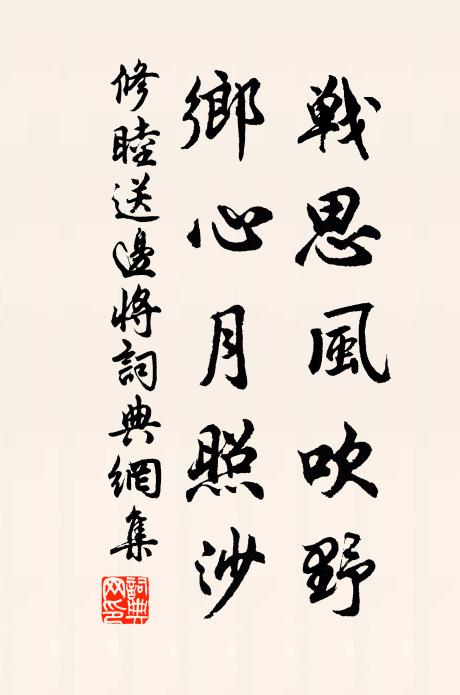 戰思風吹野
鄉心月照沙
修睦送邊將詞典網集
詞典網印